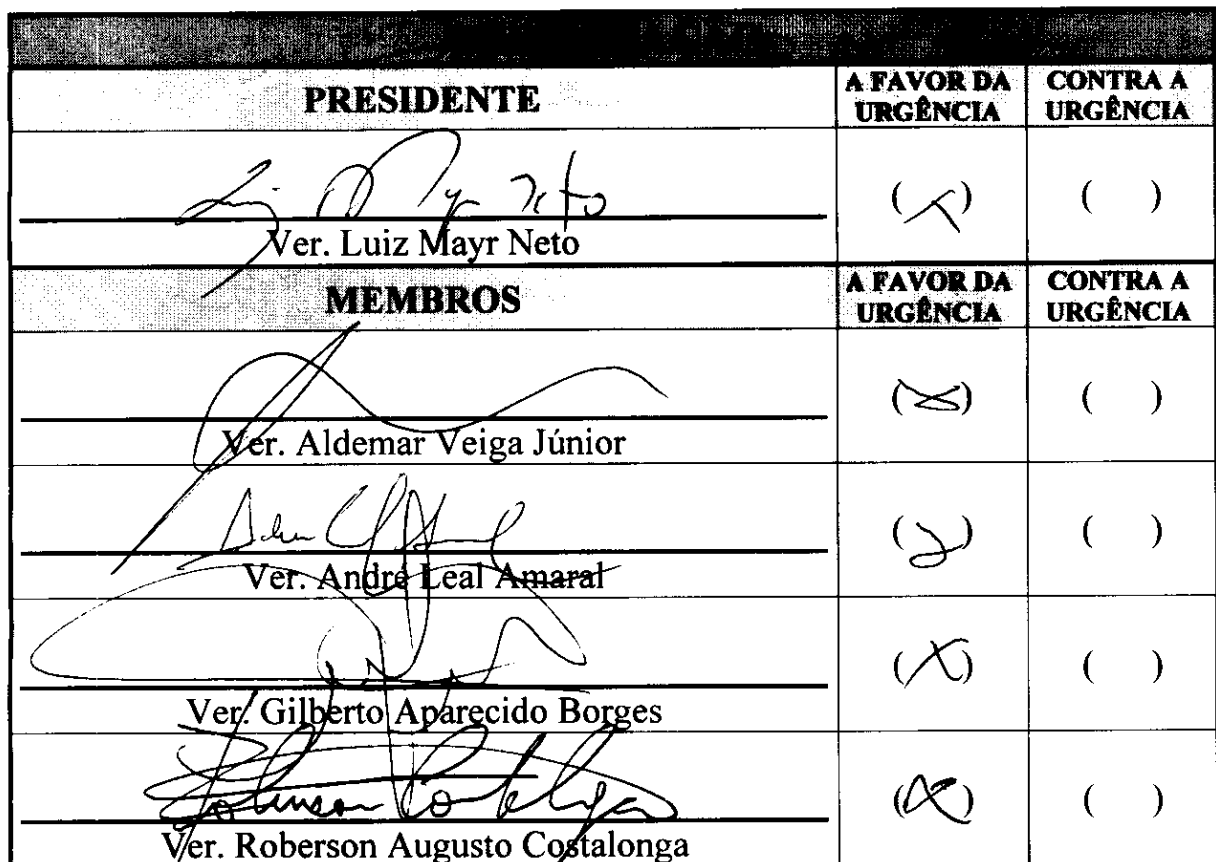 PRESIDENTE
A FAVOR DA URGÊNCIA
CONTRA A URGÊNCIA
( X ) (   )
Ver. Luiz Mayr Neto
MEMBROS
A FAVOR DA URGÊNCIA
CONTRA A URGÊNCIA
( X ) (   )
Ver. Aldemar Veiga Júnior
( X ) (   )
Ver. André Leal Amaral
( X ) (   )
Ver. Gilberto Aparecido Borges
( X ) (   )
Ver. Roberson Augusto Costalonga